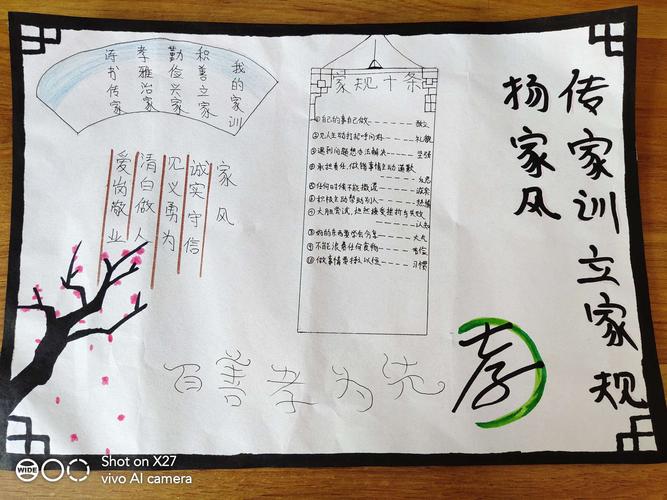 传家训立家规
扬家风
我的家训
积善立家
勤俭兴家
孝雅治家
诗书传家
家风
诚实守信
见义勇为
清白做人
爱岗敬业
家规十条
①自己的事自己做------独立
②见人主动打招呼问好----礼貌
③遇到问题想办法解决----坚强
④承担责任，做错事情主动道歉
------反思
⑤任何时候不能撒谎------诚实
⑥积极主动帮助别人------热情
⑦大胆尝试，坦然接受挫折与失败
------认知
⑧好的东西要学会分享----大方
⑨不能浪费任何食物------节俭
⑩做事情要持之以恒----习惯
百善孝为先
孝
WIDE
Shot on X27
vivo AI camera